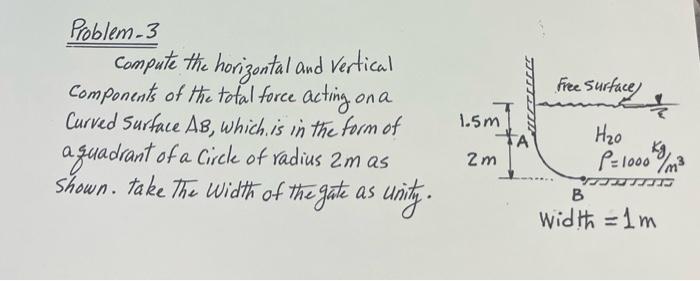 Problem-3
Compute the horizontal and Vertical
Components of the total force acting on a
Curved Surface AB, which is in the form of
a quadrant of a Circle of radius 2m as
shown. Take The Width of the gate as unity.
Free Surface
1.5m
A
H2O
2m
ρ=1000 Kg/m³
B
Width = 1m